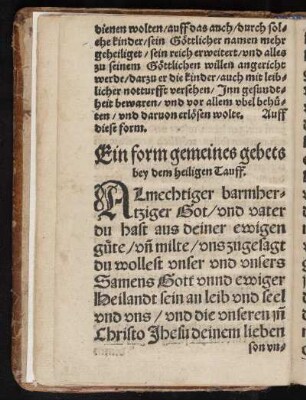 dienen wolten/auff das auch/durch sol-
che kinder/sein Göttlicher namen mehr
geheiliget/sein reich erweitert/vnd alles
zu seinem Göttlichen willen angericht
werde/darzu er die kinder/auch mit leib-
licher notturfft versehen/Inn gesundt-
heit bewaren/vnd vor allem vbel behü-
ten/vnd daruon erlösen wolte. Auff
diese form.
Ein form gemeines gebets
bey dem heiligen Tauff.
ALmechtiger barmher-
tziger Got/vnd vater
du hast aus deiner ewigen
güte/vñ milte/vns zugesagt
du wollest vnser vnd vnsers
Samens Gott vnnd ewiger
Heilandt sein an leib vnd seel
vnd vns/vnd die vnseren jn
Christo Jhesu deinem lieben
son vn-